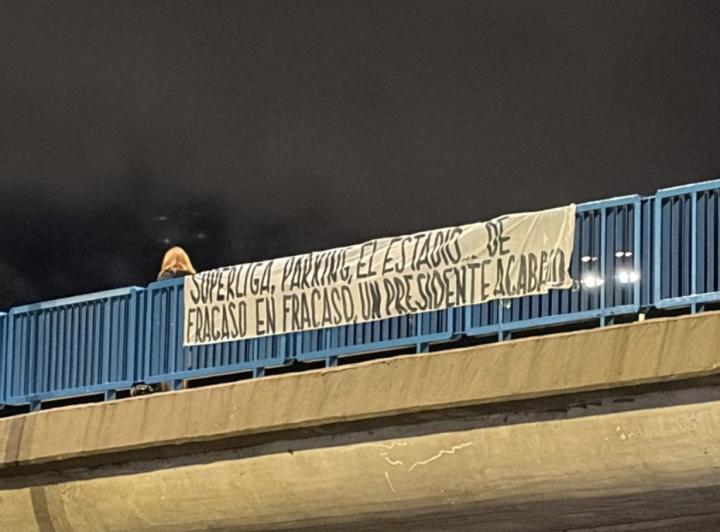 SUPERLIGA, PARKING, EL ESTADIO... DE
FRACASO EN FRACASO, UN PRESIDENTE ACABADO